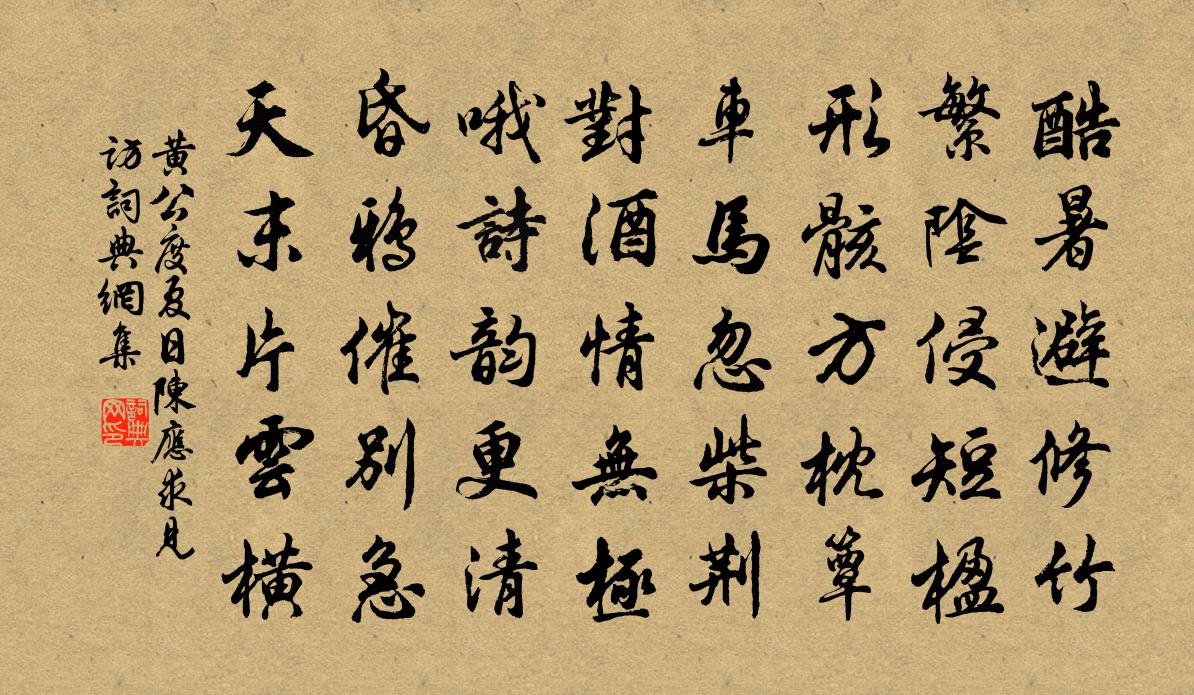 酷暑避修竹
繁陰侵短楹
形骸方枕簟
車馬忽柴荆
對酒情無極
哦詩韵更清
昏鴉催别急
天末片雲横
黄公度夏日陳應求見
訪詞典網集
詞典
网印